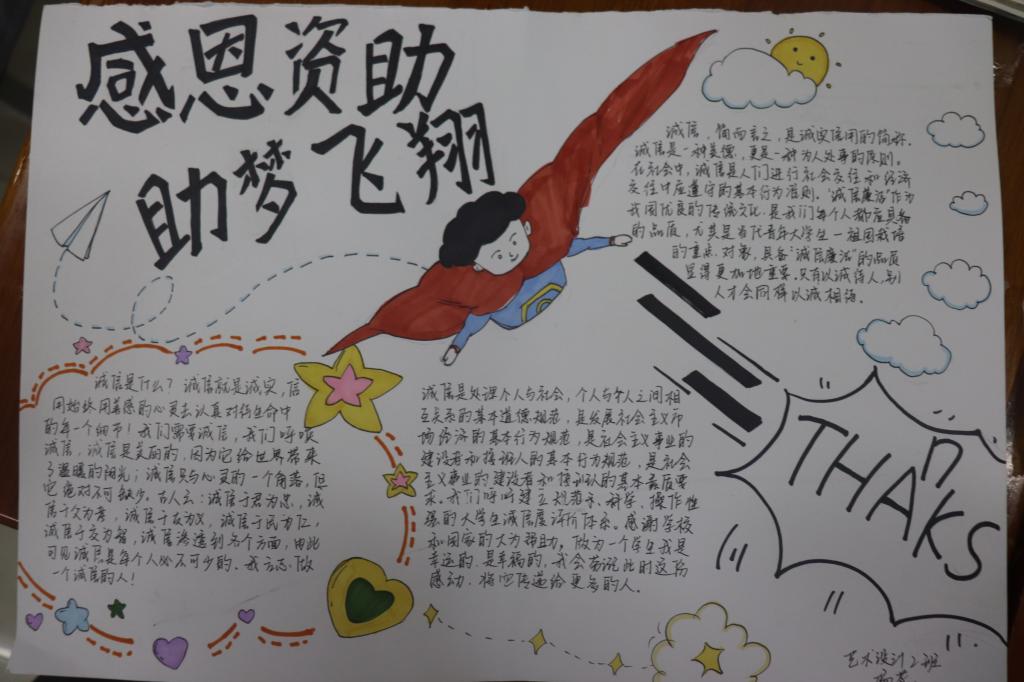 感恩资助
助梦飞翔
诚信，简而言之，是诚实信用的简称。
诚信是一种美德，更是一种为人处事的原则。
在社会中，诚信是人们进行社会交往和经济
交往中应遵守的基本行为准则。"诚信廉洁"作为
我国优良的传统文化，是我们每个人都应具备
的品质，尤其是当代青年大学生—祖国栽培
的重点对象，具备"诚信廉洁"的品质
显得更加地重要。只有以诚待人，别
人才会同样以诚相待。
诚信是什么？诚信就是诚实，信
用始终用善感的心灵去认真对待生命中
的每一个细节！我们需要诚信，我们呼唤
诚信，诚信是美丽的，因为它给世界带来
了温暖的阳光；诚信只与心灵的一个角落，但
它绝对不可缺少。古人云：诚信于君为忠，诚
信于父为孝，诚信于友为义，诚信于民为仁，
诚信于交为智，诚信渗透到各个方面，由此
可见诚信是每个人必不可少的。我立志：做
一个诚信的人！
诚信是处理个人与社会，个人与个人之间相
互关系的基本道德规范，是发展社会主义市
场经济的基本行为规范，是社会主义事业的
建设者和接班人的基本行为规范，是社会
主义事业的建设者和接班人的基本素质要
求。我们呼吁建立规范、科学、操作性
强的大学生诚信度评价体系。感谢学校
和国家的大力帮助，做为一个学生我是
幸运的，是幸福的，我会铭记此时这份
感动，将它传递给更多的人。
THAnKS
艺术设计2班